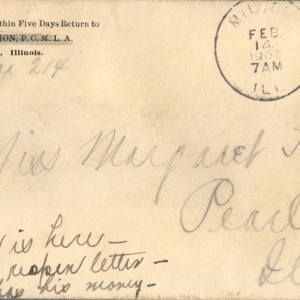 thin Five Days Return to
ION, P. C. M. L. A.
, Illinois.
214
FEB
14
7AM
ILL.
Miss Margaret
Pearl
is here —
reopen letter —
has his money —